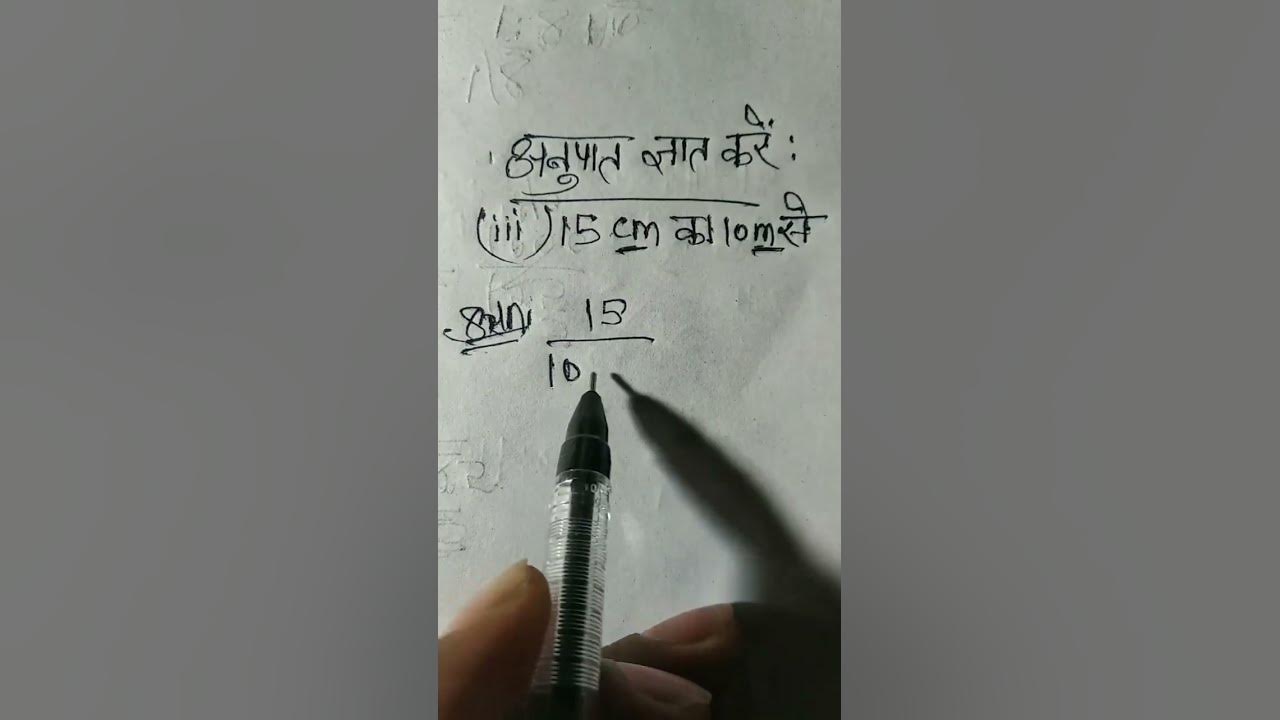 अनुपात ज्ञात करें :
(iii) 15 cm का 10 m से
15
10